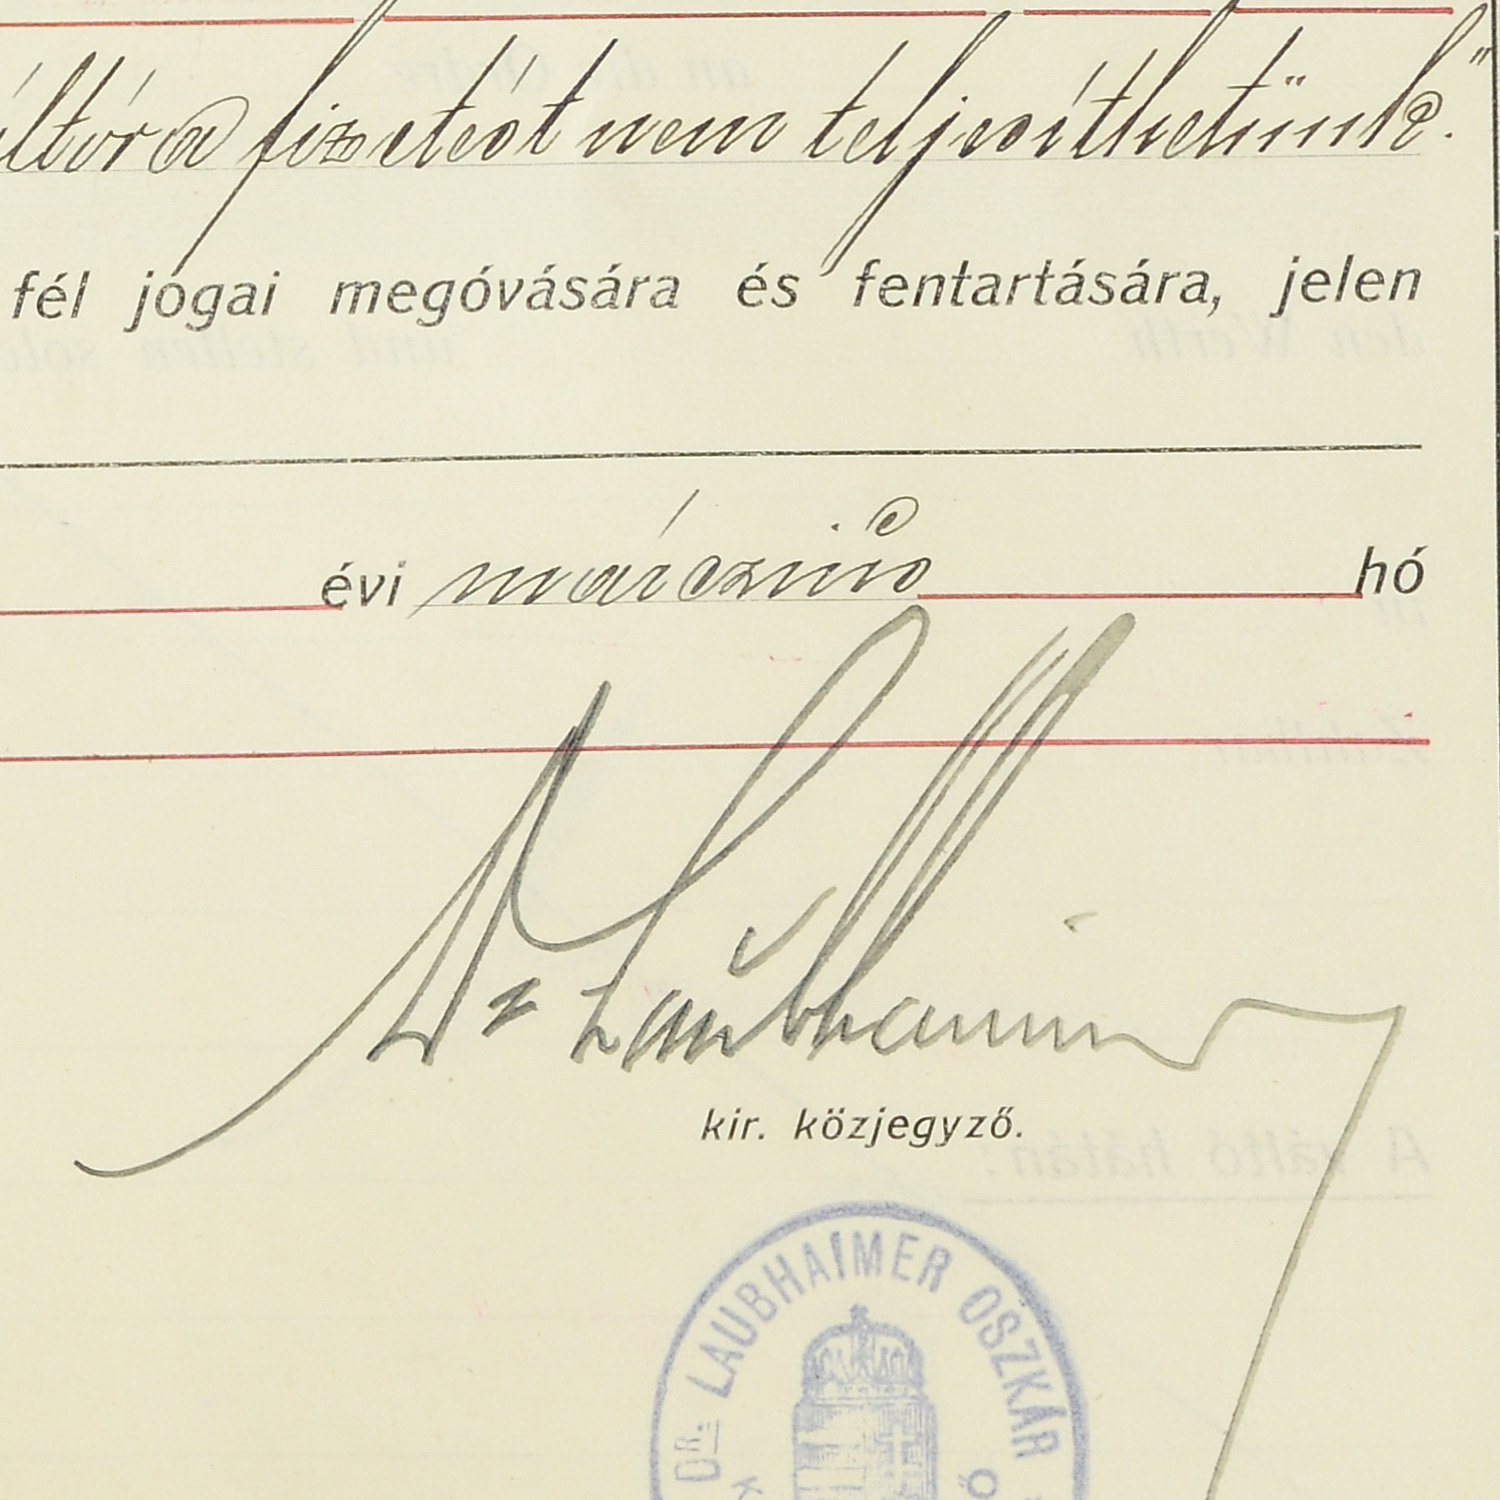 fizetést nem teljesíthetünk."
fél jogai megóvására és fentartására, jelen
évi márczius hó
Dr Laubhaimer
kir. közjegyző.
DR. LAUBHAIMER OSZKÁR